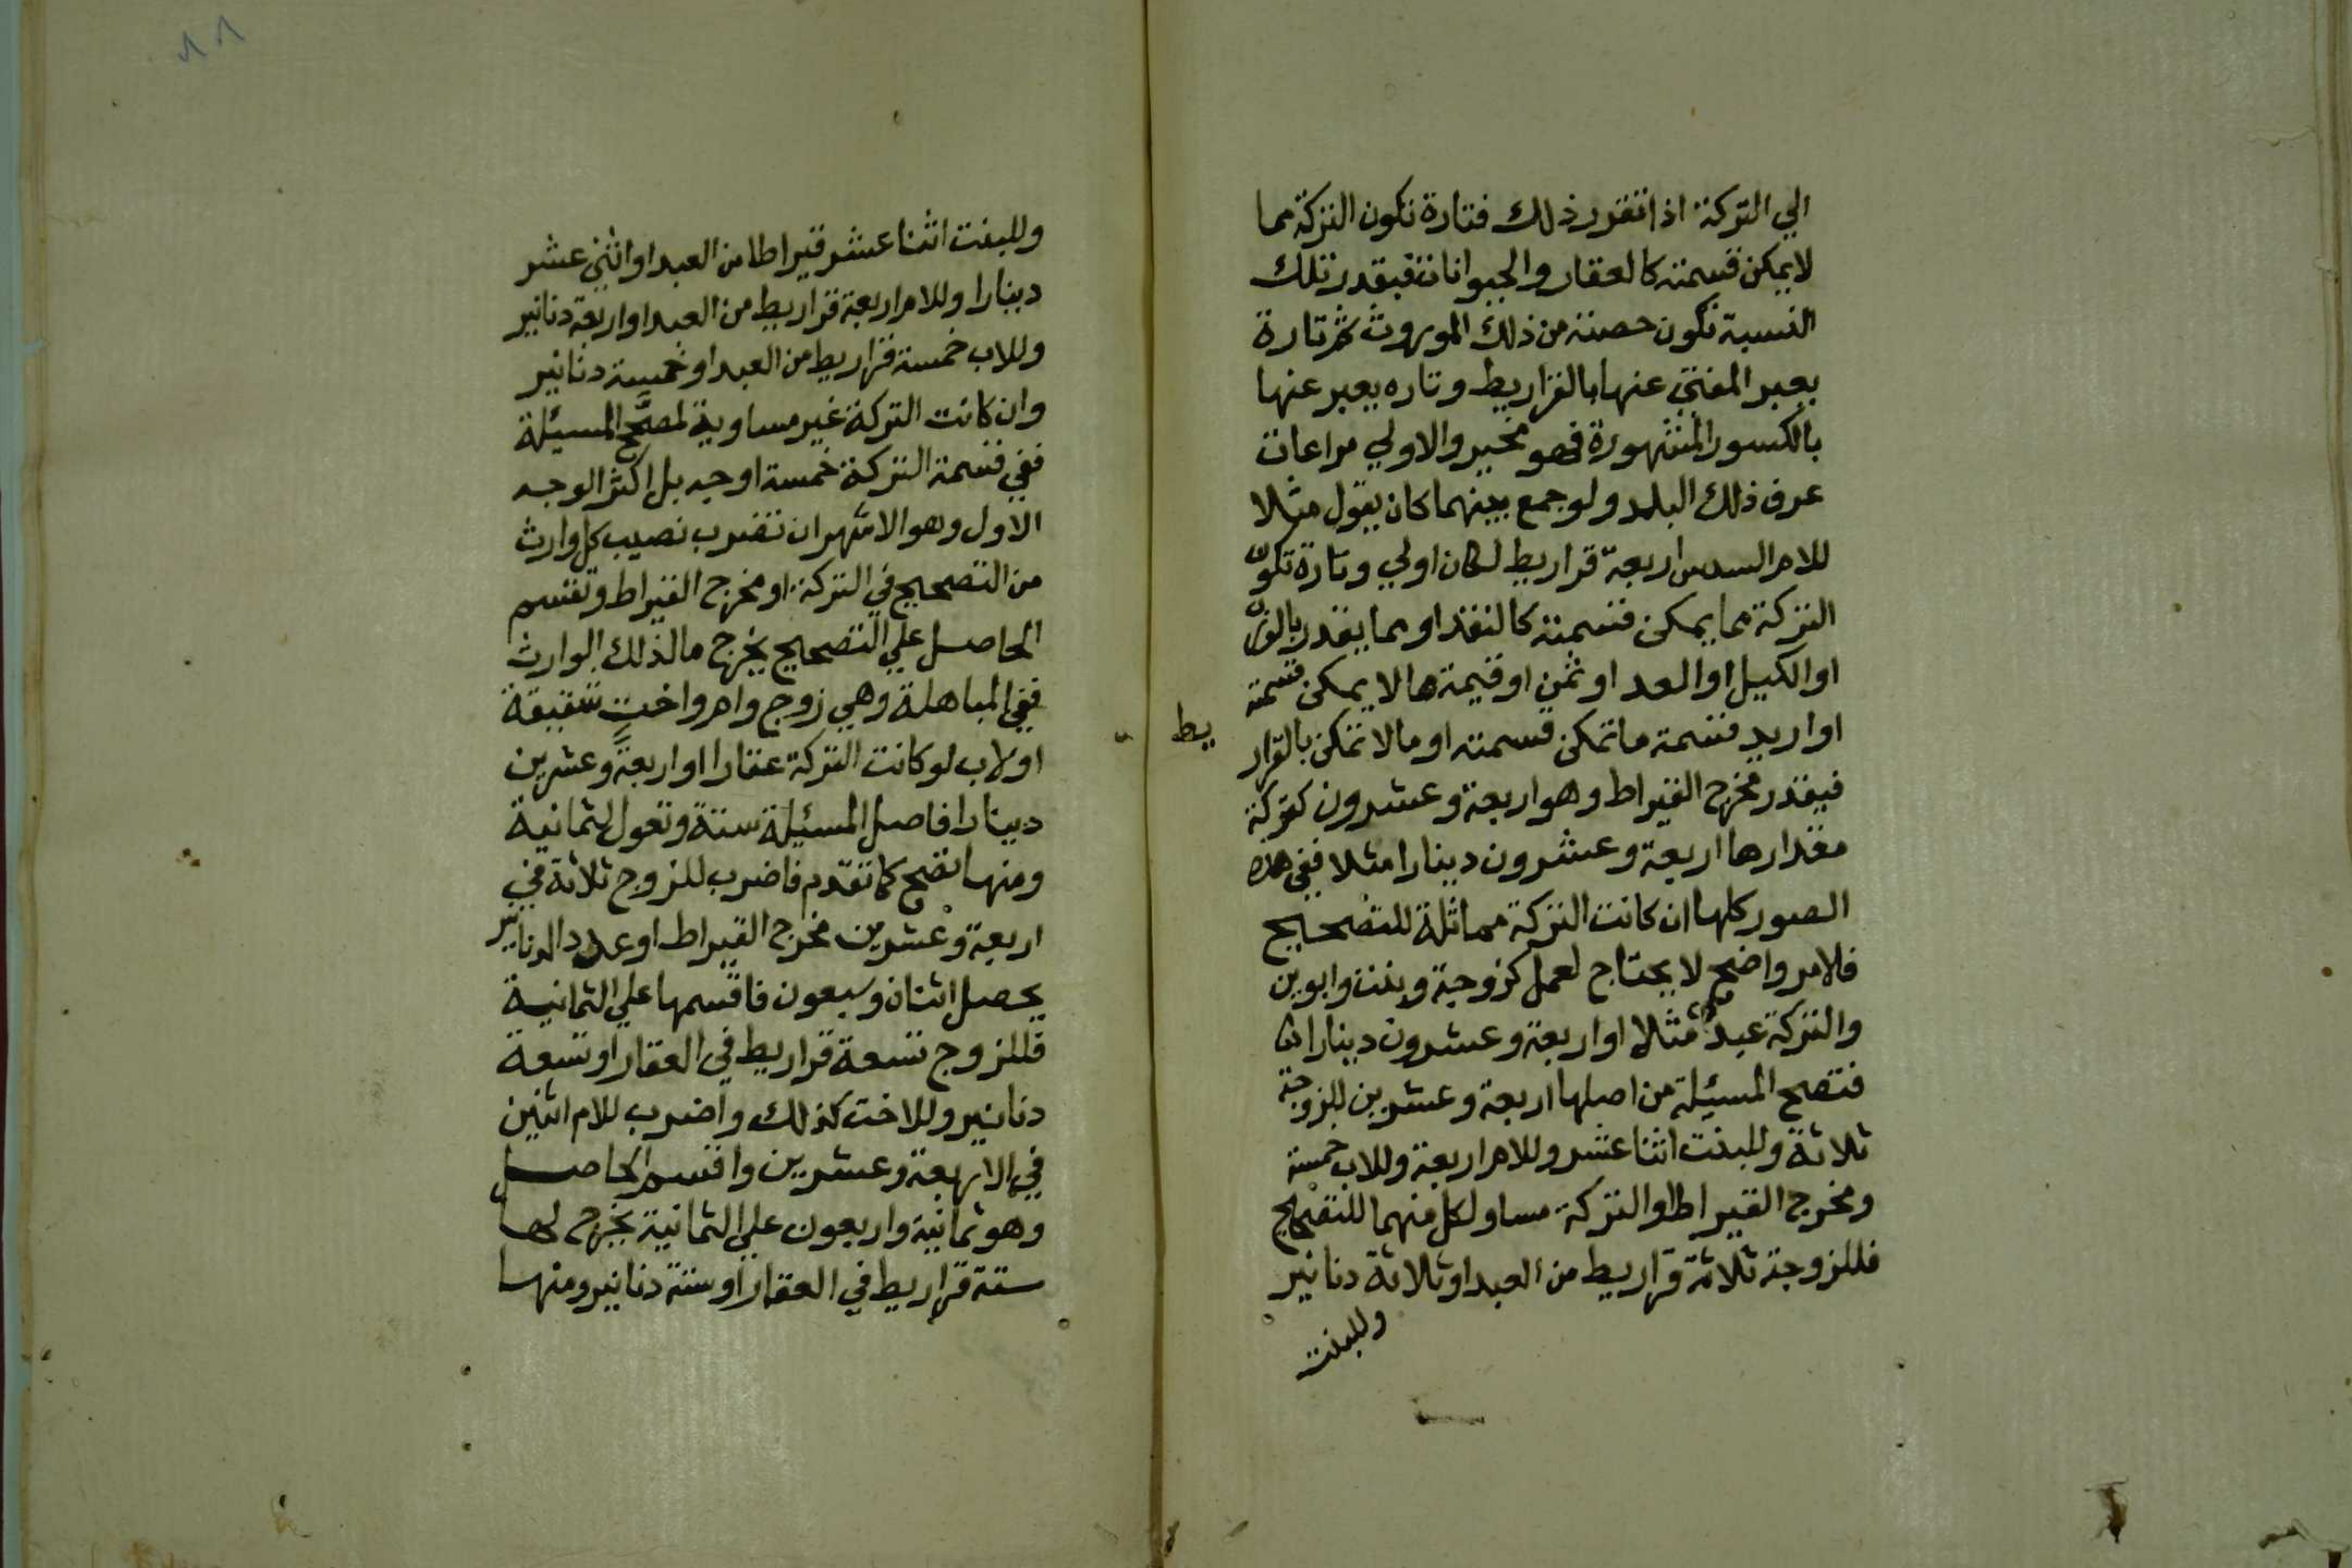 الي التركة اذا تقرر ذلك فتارة تكون التركة مما
لا يمكن قسمته كالعقار والحيوانات فبقدر تلك
النسبة تكون حصته من ذلك الموروث ثم تارة
يعبر المفتي عنها بالقراريط وتاره يعبر عنها
بالكسور المشهورة فهو مخير والاولي مراعات
عرف ذلك البلد ولو جمع بينهما كان يقول مثلا
للام السدس اربعة قراريط لكان اولي وتارة تكون
التركة مما يمكن قسمته كالنقد او مما يقدر بالوزن
او الكيل او العد او ثمن او قيمة مالا يمكن قسمته
او اريد قسمة ما تمكن قسمته او مالا تمكن بالقرار
يط
فيقدر مخرج القيراط وهو اربعة وعشرون كتركة
مقدارها اربعة وعشرون دينارا مثلا ففي هذه
الصور كلها ان كانت التركة مماثلة للتصحيح
فلامر واضح لا يحتاج لعمل كزوجة وبنت وابوين
والتركة عبد مثلا او اربعة وعشرون دينارا
فتصح المسئلة من اصلها اربعة وعشرين للزوجة
ثلاثة وللبنت اثنا عشر وللام اربعة وللاب خمسة
ومخرج القيراط او التركة مساو لكل منهما للتصحيح
فللزوجة ثلاثة قراريط من العبد او ثلاثة دنانير
وللبنت
٨٨
وللبنت اثنا عشر قيراطا من العبد او اثني عشر
دينارا وللام اربعة قراريط من العبد او اربعة دنانير
وللاب خمسة قراريط من العبد او خمسة دنانير
وان كانت التركة غير مساوية لمصحح المسئلة
ففي قسمة التركة خمسة اوجه بل اكثر الوجه
الاول وهو الاشهر ان تضرب نصيب كل وارث
من التصحيح في التركة او مخرج القيراط وتقسم
الحاصل علي التصحيح يخرج ما لذلك الوارث
ففي المباهلة وهي زوج وام واخت شقيقة
او لاب لو كانت التركة عقارا او اربعة وعشرين
دينارا فاصل المسئلة ستة وتعول لثمانية
ومنها تصح كما تقدم فاضرب للزوج ثلاثة في
اربعة وعشرين مخرج القيراط او عدد الدنانير
يحصل اثنان وسبعون فاقسمها علي الثمانية
فللزوج تسعة قراريط في العقار او تسعة
دنانير وللاخت كذلك واضرب للام اثنين
في الاربعة وعشرين واقسم الحاصل
وهو ثمانية واربعون علي الثمانية يخرج لها
ستة قراريط في العقار او ستة دنانير ومنها